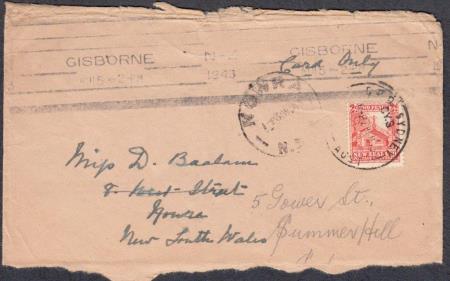 GISBORNE N.Z. GISBORNE N
1943
Card Only
NOWRA
N.S
G.P.O. SYDNEY
AUST
NEW ZEALAND
Miss D. Baalam
Street
Nowra
New South Wales
5 Gower St.,
Summer Hill